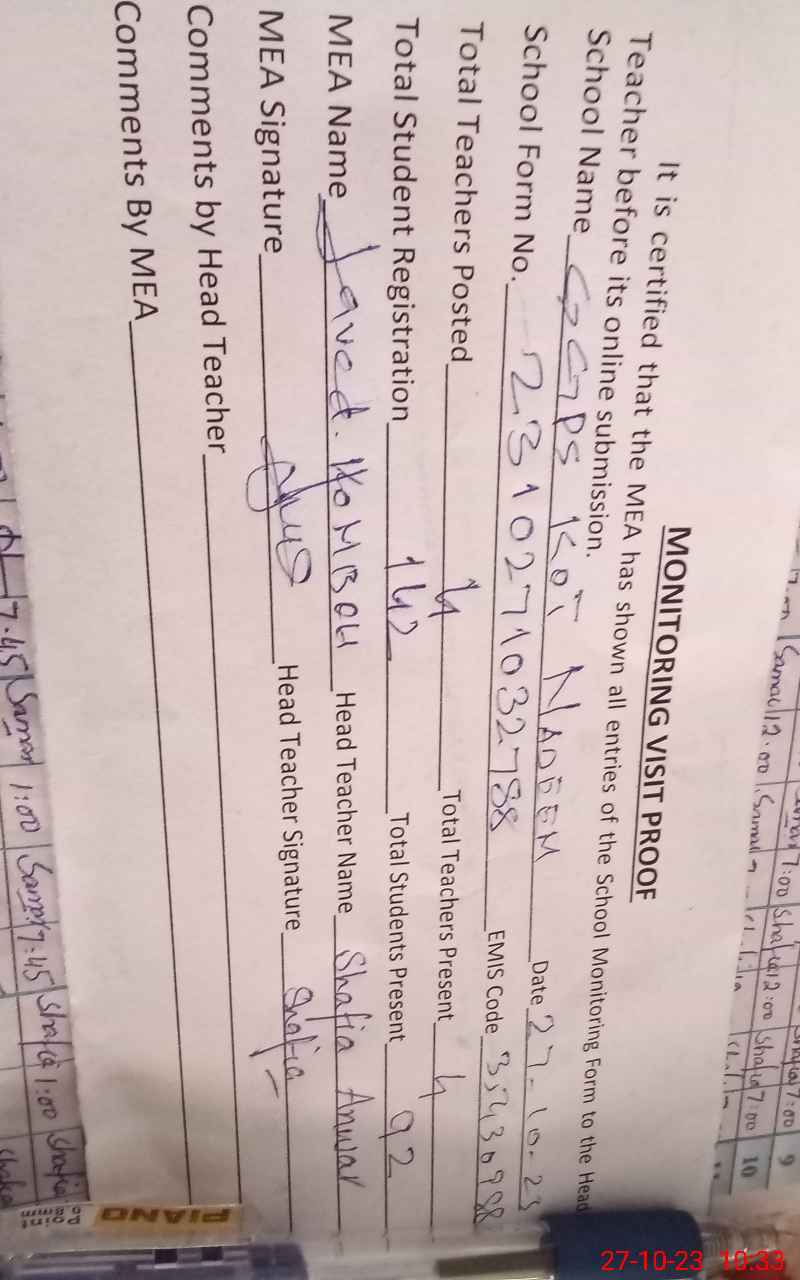 MONITORING VISIT PROOF
It is certified that the MEA has shown all entries of the School Monitoring Form to the Head
Teacher before its online submission.
School Name GGPS KOT NADEEM Date 27-10-23
School Form No. 2310271032788 EMIS Code 35430988
Total Teachers Posted 4 Total Teachers Present 4
Total Student Registration 142 Total Students Present 92
MEA Name Javed. KOMBOH Head Teacher Name Shafia Anwar
MEA Signature Head Teacher Signature Shafia
Comments by Head Teacher
Comments By MEA
7:00 Shafia 7:00 9
Samar 12:00 Shafia 12:00 Shafia 7:00 10
7:45 Samar 1:00 Samar 7:45 Shafia 1:00 Shafia
PIANO
27-10-23 10:33